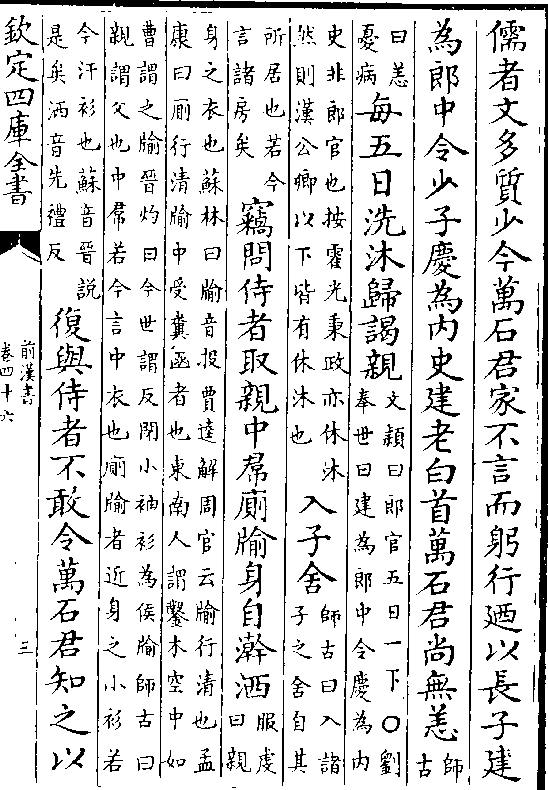 儒者文多質少今萬石君家不言而躬行廼以長子建
為郎中令少子慶為内史建老白首萬石君尚無恙師古
曰恙憂病每五日洗沐歸謁親文頴曰郎官五日一下○劉奉世曰建為郎中令慶為内
史非郎官也按霍光秉政亦休沐然則漢公卿以下皆有休沐也入子舍師古曰入諸子之舍自其
所居也若今言諸房矣竊問侍者取親中帬廁牏身自澣洒服虔曰親
身之衣也蘇林曰牏音投賈逵解周官云牏行清也孟康曰廁行清牏中受糞函者也東南人謂鑿木空中如
曹謂之牏晉灼曰今世謂反閉小袖衫為侯牏師古曰親謂父也中帬若今言中衣也廁牏者近身之小衫若
今汗衫也蘇音晉説是矣洒音先禮反復與侍者不敢令萬石君知之以
欽定四庫全書
前漢書
卷四十六
三